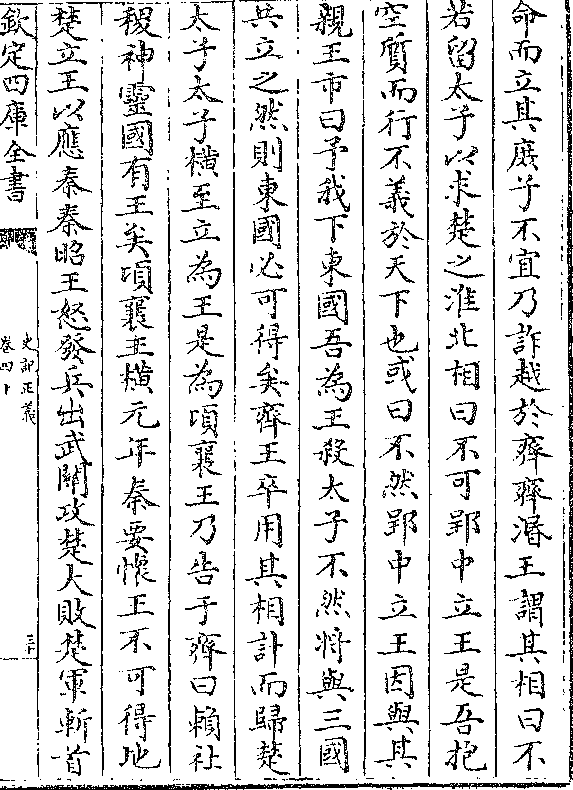 命而立其庶子不宜乃詐赴於齊齊湣王謂其相曰不
若留太子以求楚之淮北相曰不可郢中立王是吾抱
空質而行不義於天下也或曰不然郢中立王因與其
新王市曰予我下東國吾為王殺太子不然將與三國
共立之然則東國必可得矣齊王卒用其相計而歸楚
太子太子橫至立為王是為頃襄王乃告于秦曰賴社
稷神靈國有王矣頃襄王橫元年秦要懷王不可得地
楚立王以應秦秦昭王怒發兵出武關攻楚大敗楚軍斬首
欽定四庫全書
史記正義
卷四十